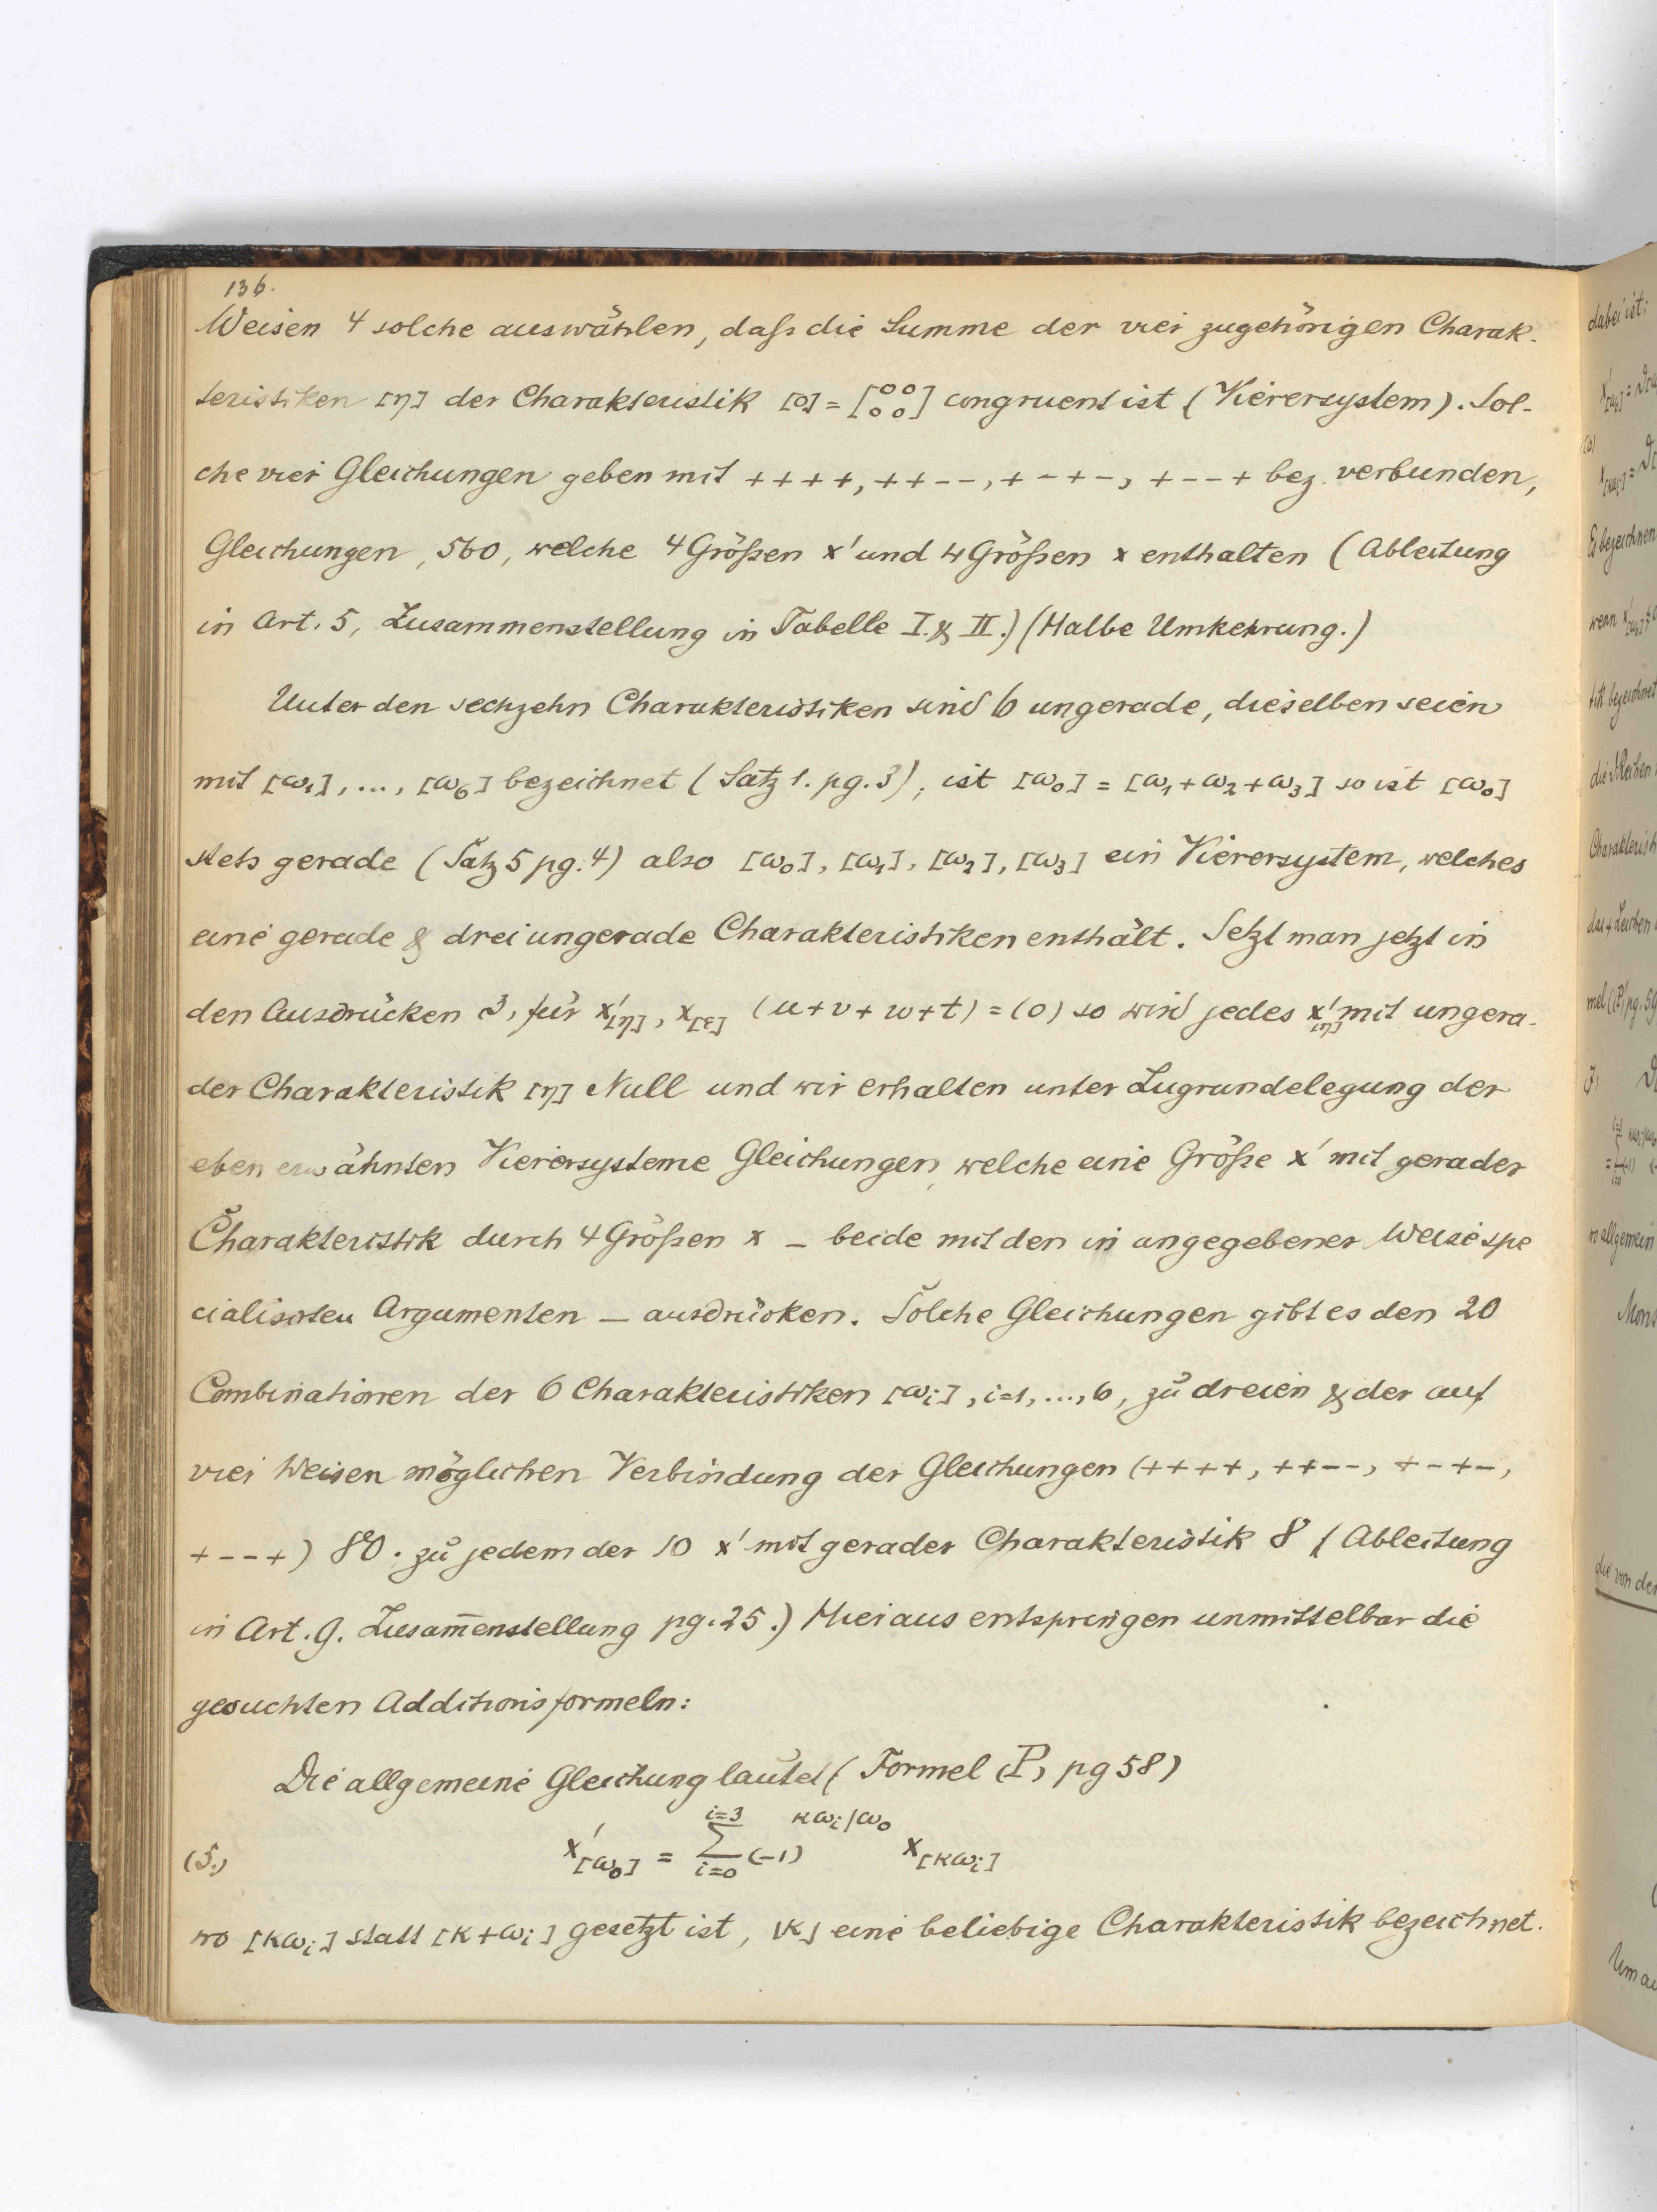 136.
Weisen 4 solche auswählen, daß die Summe der vier zugehörigen Charak-
teristiken [η] der Charakteristik [0] = [⁰⁰₀₀] congruent ist (Vierersystem). Sol-
che vier Gleichungen geben mit ++++, ++--, +-+-, +--+ bez. verbunden,
Gleichungen, 560, welche 4 Größen x' und 4 Größen x enthalten (Ableitung
in Art. 5, Zusammenstellung in Tabelle I. & II.) (Halbe Umkehrung.)
Unter den sechzehn Charakteristiken sind 6 ungerade, dieselben seien
mit [ω₁], ..., [ω₆] bezeichnet (Satz 1. pg. 3), ist [ω₀] = [ω₁+ω₂+ω₃] so ist [ω₀]
stets gerade (Satz 5 pg. 4) also [ω₀], [ω₁], [ω₂], [ω₃] ein Vierersystem, welches
eine gerade & drei ungerade Charakteristiken enthält. Setzt man jetzt in
den Ausdrücken 3, für x'[η], x[ε] (u+v+w+t) = (0) so wird jedes x'[η] mit ungera-
der Charakteristik [η] Null und wir erhalten unter Zugrundelegung der
eben erwähnten Vierersysteme Gleichungen, welche eine Größe x' mit gerader
Charakteristik durch 4 Größen x – beide mit den in angegebener Weise spe
cialisirten Argumenten – ausdrücken. Solche Gleichungen gibt es den 20
Combinationen der 6 Charakteristiken [ωᵢ], i=1, ..., 6, zu dreien & der auf
vier Weisen möglichen Verbindung der Gleichungen (++++, ++--, +-+-,
+--+) 80. zu jedem der 10 x' mit gerader Charakteristik 8 (Ableitung
in Art. 9. Zusam̄enstellung pg. 25.) Hieraus entspringen unmittelbar die
gesuchten Additionsformeln:
Die allgemeine Gleichung lautet (Formel (P), pg 58)
(5.) x'[ω₀] = Σ_{i=0}^{i=3} (-1)^{κωᵢ|ω₀} x[κωᵢ]
wo [κωᵢ] statt [κ+ωᵢ] gesetzt ist, [κ] eine beliebige Charakteristik bezeichnet.
dabei ist:
Es bezeichnen
wenn
tik bezeichnet
die Reihen
Charakterist
das + Zeichen
mel (P, pg. 59
allgemein
die von der